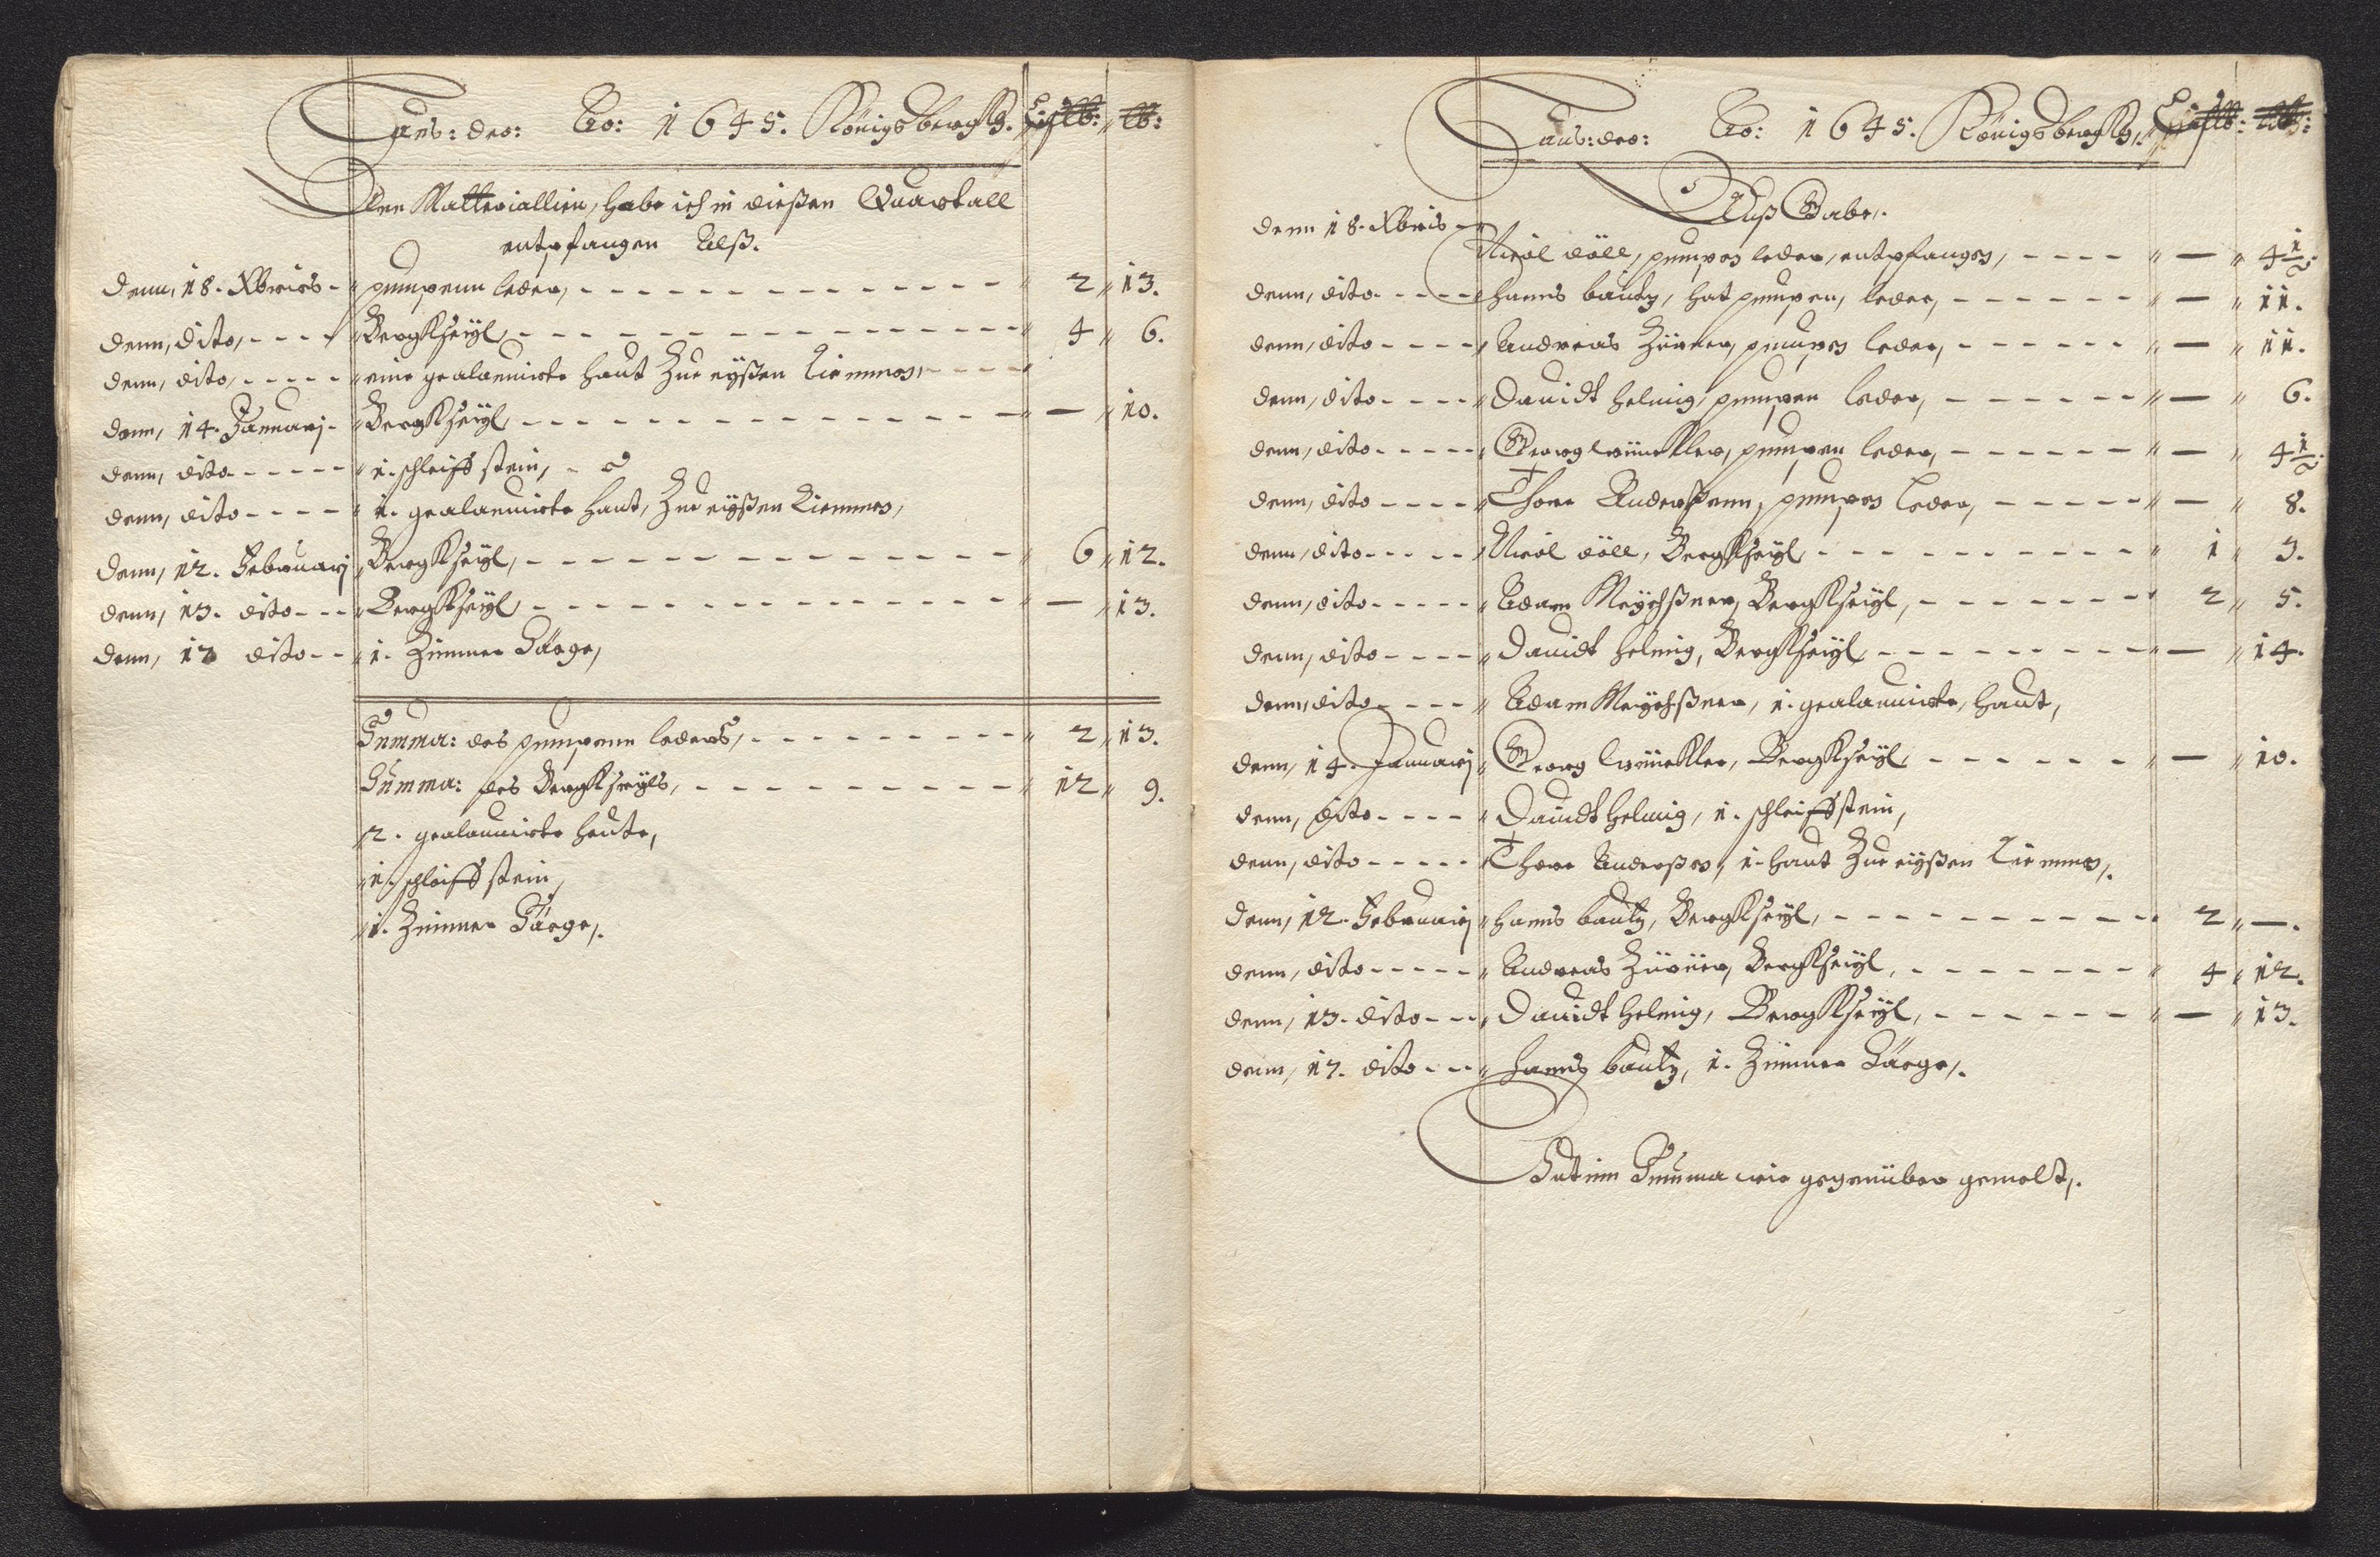 Laus: deo: Ao: 1645. Königsbergk. Lißlb: lb:
Ann Matteriallien, habe ich in dießen Quartall
entpfangen Alß.
Denn, 18. Xbrirs - pumpenn leder, 2 13.
denn, dito, Bergkseÿl 4 6.
denn, dito, eine gealaunirte haut Zue eÿßen Riemmen,
denn, 14. Januarj Bergkseÿl — 10.
denn, dito 1. schleiff stein,
denn, dito 1. gealaunirte haut, Zue eÿßen Riemmen,
denn, 12. Februarj Bergkseÿl, 6 12.
denn, 13. dito Bergkseÿl — 13.
denn, 17 dito 1. Zimmer Särge,
Summa: des pumpenn leders, 2 13.
Summa: des Bergkseÿls, 12 9.
2. gealaunirte heute,
1. schleiff stein,
1. Zimmer Särge,.
Laus: deo: Ao: 1645. Königsbergk, Lißlb: lb:
Auß Gabe,.
denn 18. Xbris
Nicol döll, pumpen leder, entpfangen, — 4 1/2.
denn, dito hanns bautz, hat pumpen, leder, — 11.
denn, dito Andreas Zürner, pumpen leder, — 11.
denn, dito Dauidt helmig, pumpen leder, — 6.
denn, dito Georg winckler, pumpen leder, — 4 1/2.
denn, dito Thore Anderßenn, pumpen leder, — 8.
denn, dito Nicol döll, Bergkseÿl 1 3.
denn, dito Adam Meÿchßner, Bergkseÿl, 2 5.
denn, dito Dauidt helmig, Bergkseÿl — 14.
denn, dito Adam Meÿchßner, 1. gealaunirte, haut,
denn, 14. Januarj Georg winckler, Bergkseÿl — 10.
denn, dito Dauidt helmig, 1. schleiffstein,
denn, dito Thore Anderßen, 1. haut Zue eÿßen Riemmen,.
denn, 12. Februarj hanns bautz, Bergkseÿl, 2 —.
denn, dito Andreas Zürner, Bergkseÿl, 4 12.
denn, 13. dito Dauidt helmig, Bergkseÿl, — 13.
denn, 17. dito hanns bautz, 1. Zimmer Särge,.
Hut inn Summa wie gegenüber gemelt,.